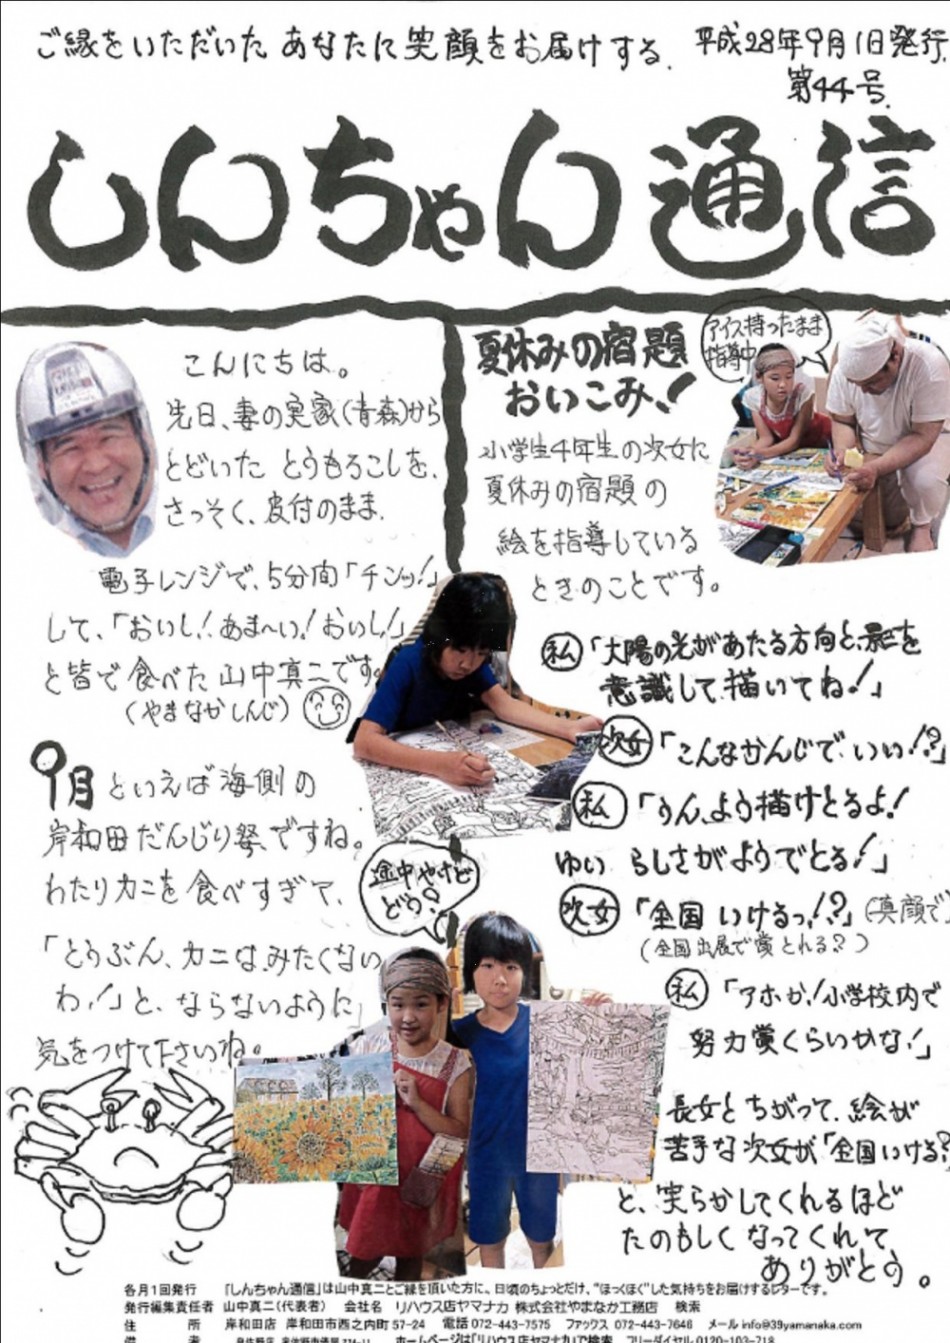 ご縁をいただいた あなたに 笑顔をお届けする。
平成28年9月1日発行
第44号
しんちゃん通信
こんにちは。
先日、妻の実家(青森)から
とどいた とうもろこしを、
さっそく、皮付のまま、
電子レンジで、5分間「チンッ!」
して、「おいし!あま〜い!おいし!」
と皆で食べた 山中真二です。
(やまなかしんじ)
9月といえば海側の
岸和田だんじり祭ですね。
わたりカニを食べすぎて、
「とうぶん、カニは、みたくない
わ!」と、ならないように」
気をつけて下さいね。
夏休みの宿題
おいこみ!
アイス持ったまま
指導中
小学生4年生の次女に
夏休みの宿題の
絵を指導している
ときのことです。
私「太陽の光があたる方向と、影を
意識して描いてね!」
次女「こんなかんじで、いい!?」
私「うん、よう描けとるよ!
ゆい らしさがようでとる!」
次女「全国 いけるっ!?」(真顔で)
(全国出展で賞とれる?)
私「アホか!小学校内で
努力賞くらいかな!」
途中やけど
どう?
長女とちがって、絵が
苦手な次女が「全国いける?」
と、笑らかしてくれるほど
たのもしく なってくれて
ありがとう。
各月1回発行 「しんちゃん通信」は山中真二とご縁を頂いた方に、日頃のちょっとだけ、“ほっくほく”した気持ちをお届けするレターです。
発行編集責任者 山中真二(代表者) 会社名 リハウス店ヤマナカ 株式会社やまなか工務店 検索
住 所 岸和田店 岸和田市西之内町57-24 電話 072-443-7575 ファックス 072-443-7646 メール info@39yamanaka.com
備 考 ホームページは「リハウス店ヤマナカ」で検索 フリーダイヤル 0120-103-718